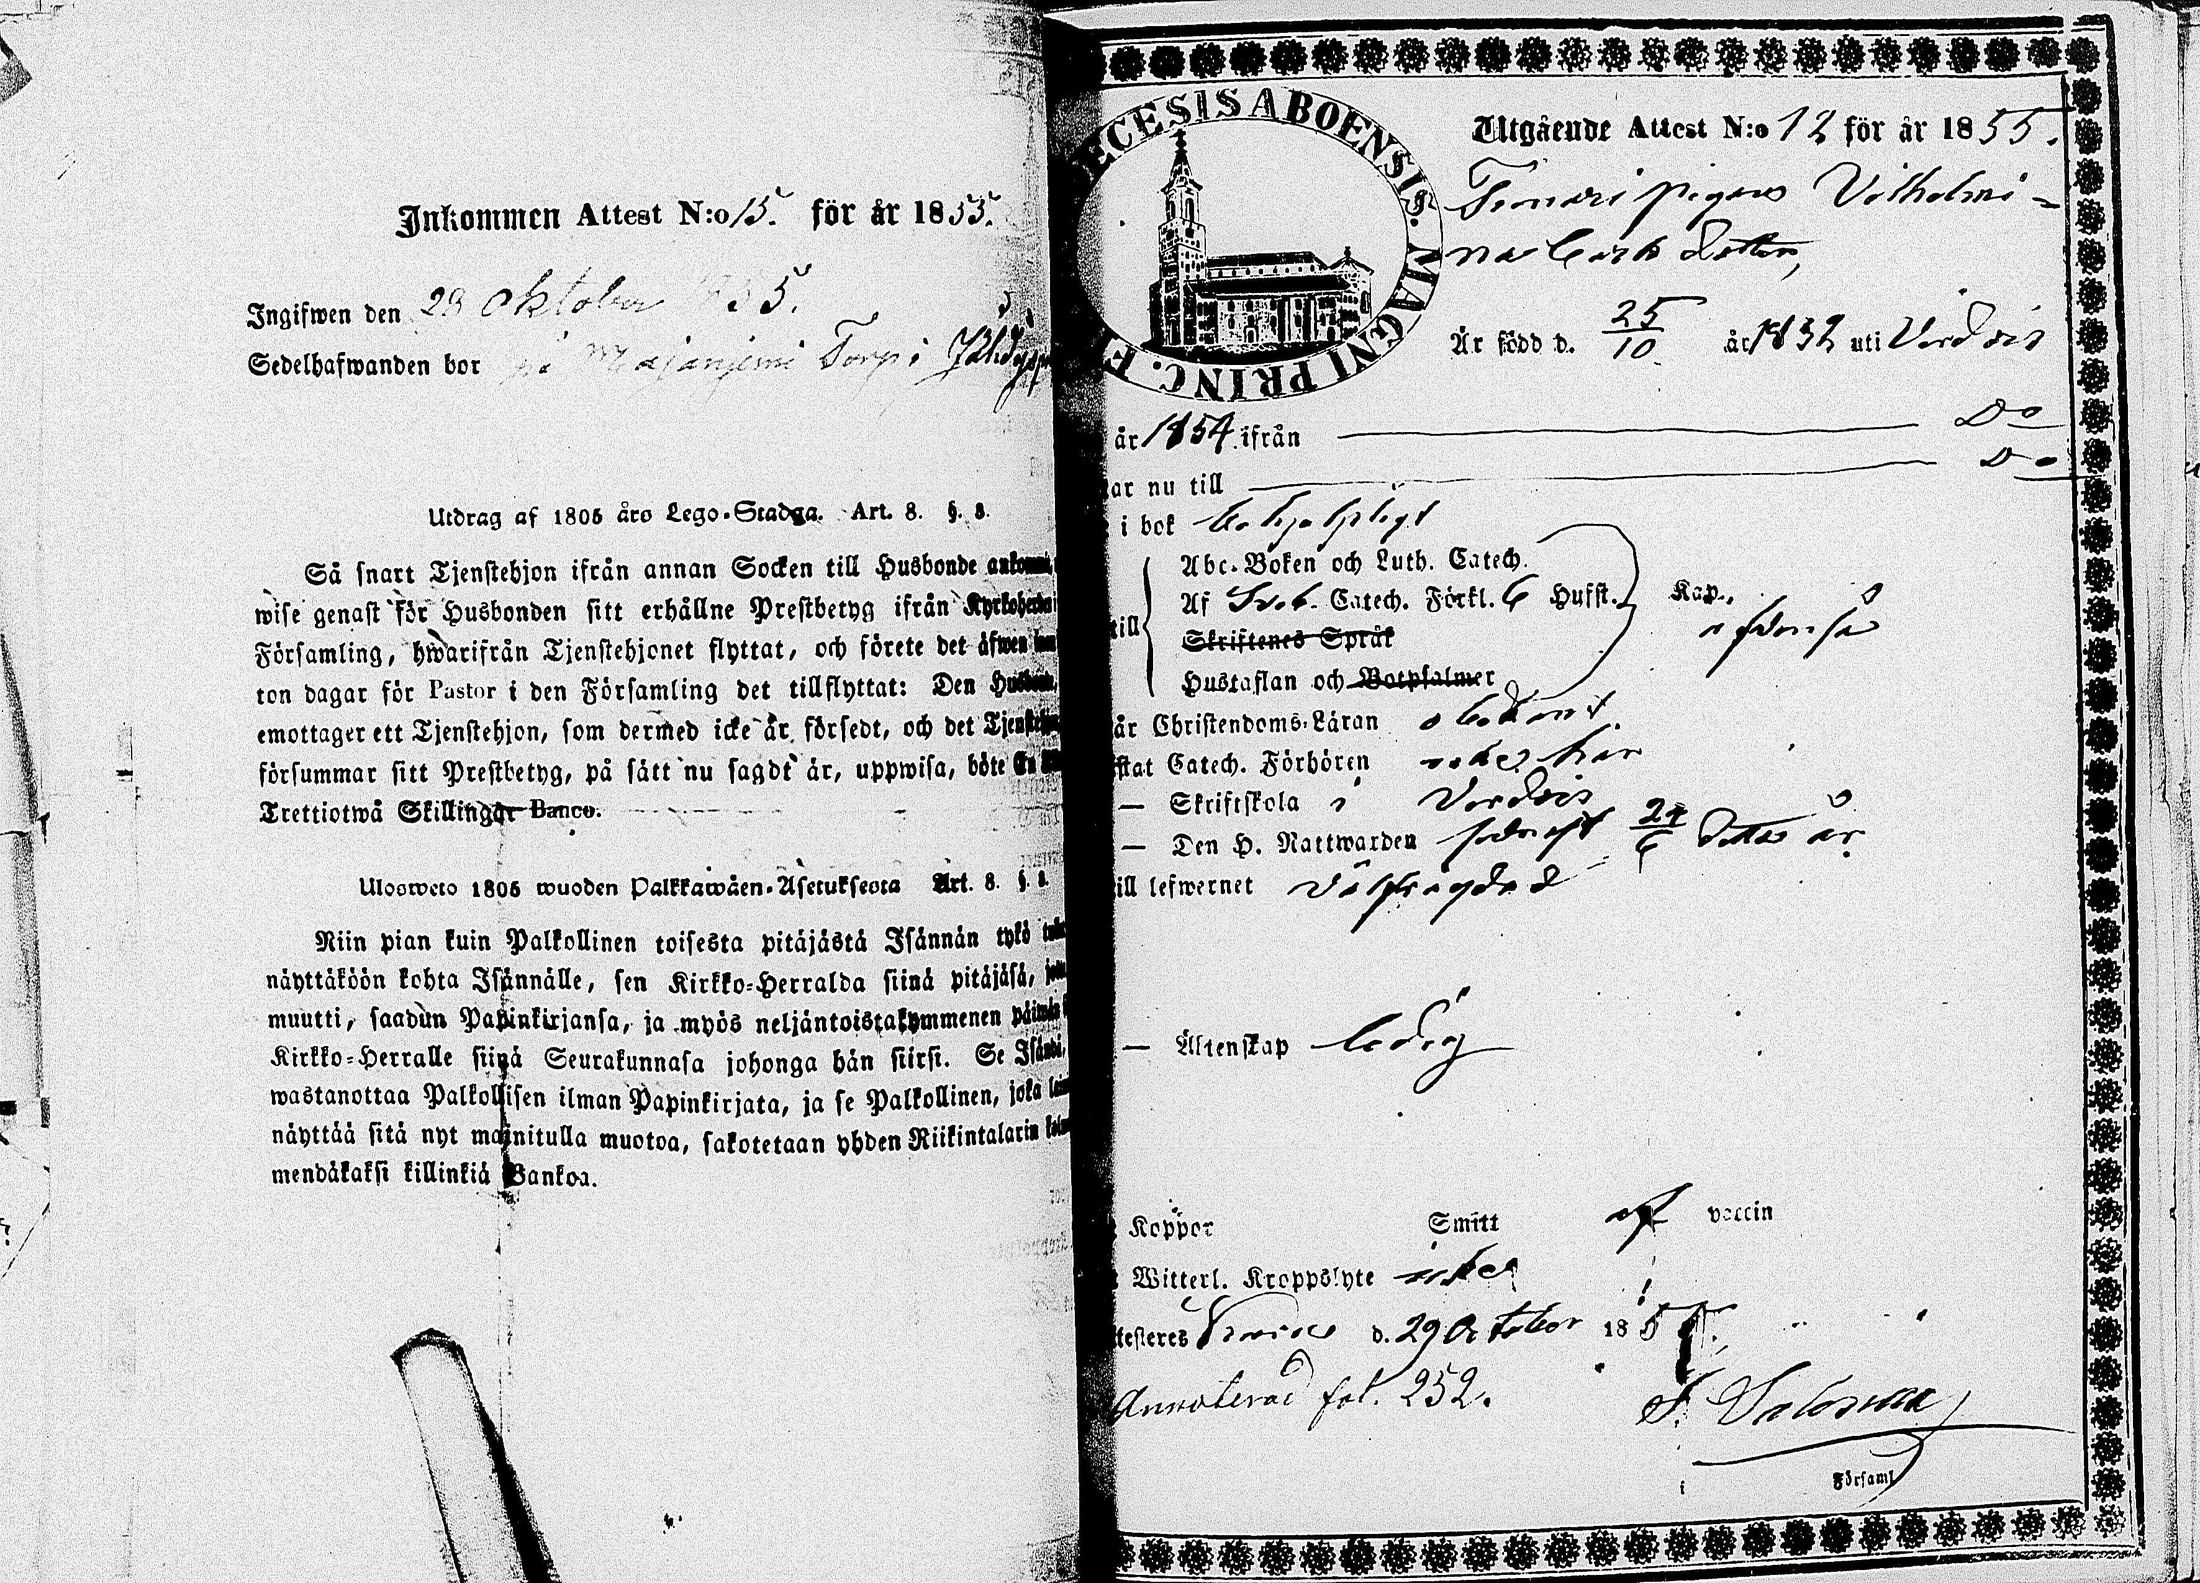 Inkommen Attest N:o 15. för år 1855.
Ingifwen den 28 Oktober 1855.
Sedelhafwanden bor på Torp i
Utdrag af 1805 års Lego-Stadga. Art. 8. §. 8.
Så snart Tjenstehjon ifrån annan Socken till Husbonde
wise genast för Husbonden sitt erhållne Prestbetyg ifrån
Församling, hwarifrån Tjenstehjonet flyttat, och förete det äfwen
ton dagar för Pastor i den Församling det tillflyttat: Den
emottager ett Tjenstehjon, som dermed icke är försedt, och det
försummar sitt Prestbetyg, på sätt nu sagdt är, uppwisa, böte
Trettiotwå Skillingar Banco.
Ulosweto 1805 wuoden Palkkawäen-Asetuksesta Art. 8. §. 8.
Niin pian kuin Palkollinen toisesta pitäjästä Isännän tykö
näyttäköön kohta Isännälle, sen Kirkko-Herralda siinä pitäjäsä,
muutti, saadun Papinkirjansa, ja myös neljäntoistakymmenen
Kirkko-Herralle siinä Seurakunnasa johonga hän siirsi. Se
wastanottaa Palkollisen ilman Papinkirjata, ja se Palkollinen, joka
näyttää sitä nyt mainitulla muotoa, sakotetaan yhden Riikintalarin
mendäkaksi killinkiä Bankoa.
ECESIS ABOENSIS. MAGNI PRINC. F
Utgående Attest N:o 12 för år 1855.
pigan Vilhelmi-
na Carls dotter,
Är född d. 25/10 år 1832 uti
år 1854. ifrån Do
ar nu till Do
i bok
Abc-Boken och Luth. Catech.
Af Sveb. Catech. Förkl. 6 Hufst. Kap.
till
Skriftenes Språk
Hustaflan och Botpsalmer
är Christendoms-Läran
stat Catech. Förhören här
— Skriftskola i
— Den H. Nattwarden 24/6 detta år
ill lefwernet välfrägdad
— Äktenskap ledig
Koppor Smitt af vaccin
Witterl. Kroppslyte icke
testeres d. 29 October 1855.
Annoterad fol. 252.
i Församl